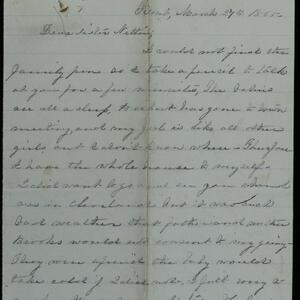 March 27th 1865
Dear Sister Nettie,
I could not find the
family pen so I take a pencil to talk
at you for a few minutes, The babies
are all asleep, has gone to town
meeting, and my girl is like all other
girls but I don't know where - Therefore
I have the whole house to myself.
I did want to go and see you when I
was in Cleveland but it was such
bad weather that father and mother
Brooks would not consent to my going.
They were afraid the baby would
take cold if I did so. I felt sorry to